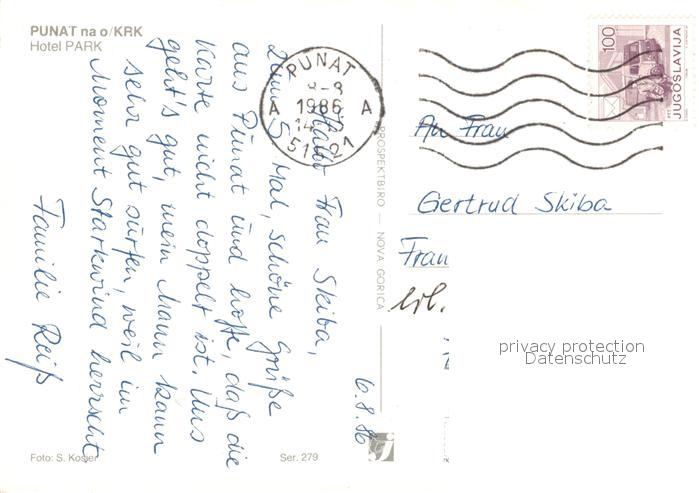 PUNAT na o/KRK
Hotel PARK
6.8.86
Hallo Frau Skiba,
zum 5. Mal, schöne Grüße
aus Punat und hoffe, daß die
Karte nicht doppelt ist. Uns
geht's gut, mein Mann kann
sehr gut surfen, weil im
Moment Starkwind herrscht
Familie Reiß
Foto: S. Kosier
Ser. 279
PROSPEKTBIRO — NOVA GORICA
PUNAT
1986
A A
51521
100
JUGOSLAVIJA
An Frau
Gertrud Skiba
privacy protection
Datenschutz